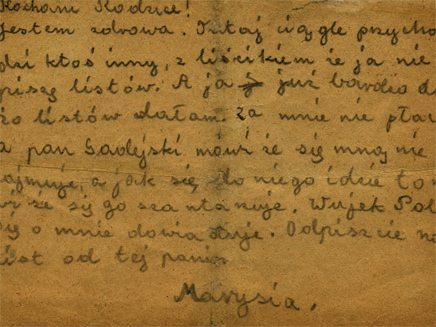 Kochani Rodzice!
Jestem zdrowa. Tutaj ciągle przycho
dzi ktoś inny, z liścikiem że ja nie
piszę listów. A ja już bardzo du
żo listów dałam. Za mnie nie płac
a pan Sadejski mówi że się mną nie
zajmuje, a jak się do niego idzie to
że się go szantażuje. Wujek Pol
się o mnie dowiaduje. Odpiszcie na
list od tej pani.
Marysia.